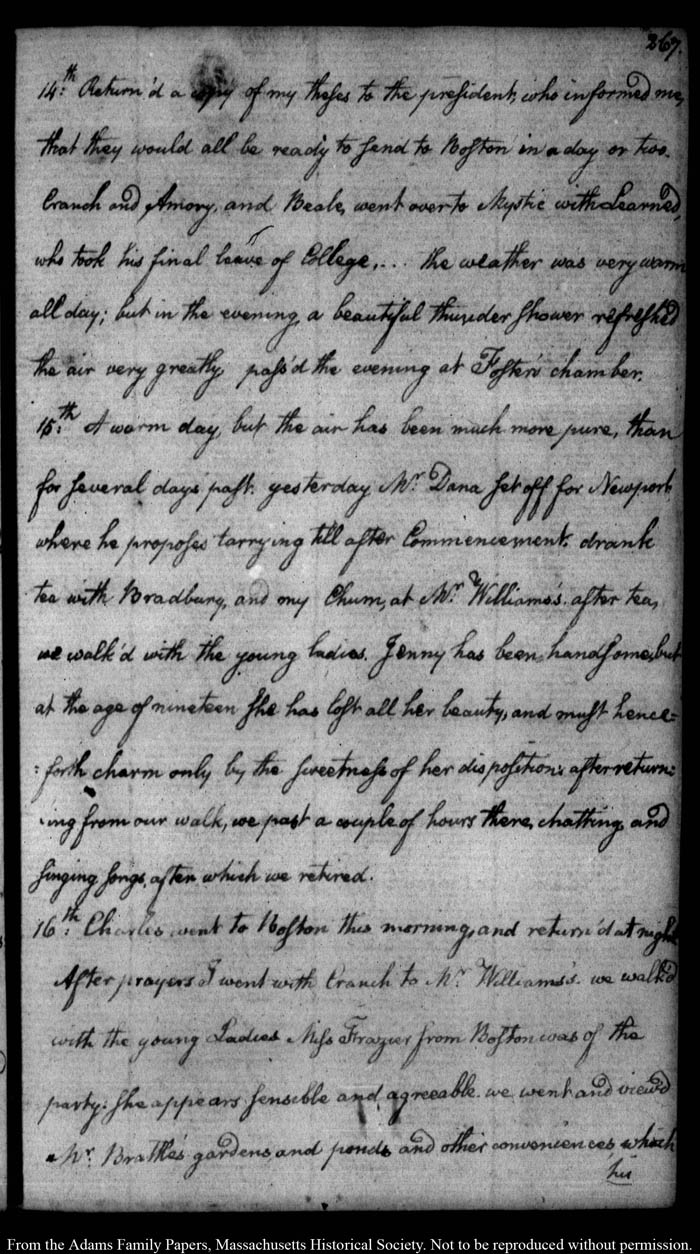 267.
14.th Return'd a copy of my theses to the president, who informed me,
that they would all be ready to send to Boston in a day or two.
Cranch and Amory, and Beale, went over to Mystic with Learned,
who took his final leave of College,... the weather was very warm
all day; but in the evening, a beautiful thunder shower refreshed
the air very greatly pass'd the evening at Foster's chamber.
15.th A warm day, but the air has been much more pure, than
for several days past. yesterday Mr. Dana set off for Newport
where he proposes tarrying till after Commencement. drank
tea with Bradbury, and my Chum, at Mr. Williams's. after tea,
we walk'd with the young ladies. Jenny has been handsome, but
at the age of nineteen she has lost all her beauty, and must hence=
=forth charm only by the sweetness of her disposition: after return=
ing from our walk, we past a couple of hours there, chatting, and
singing songs, after which we retired.
16.th Charles went to Boston this morning, and return'd at night
After prayers I went with Cranch to Mr. Williams's. we walk'd
with the young Ladies Miss Frazier from Boston was of the
party: she appears sensible and agreeable. we went and view'd
Mr. Brattle's gardens, and ponds, and other conveniences which
his
From the Adams Family Papers, Massachusetts Historical Society. Not to be reproduced without permission.